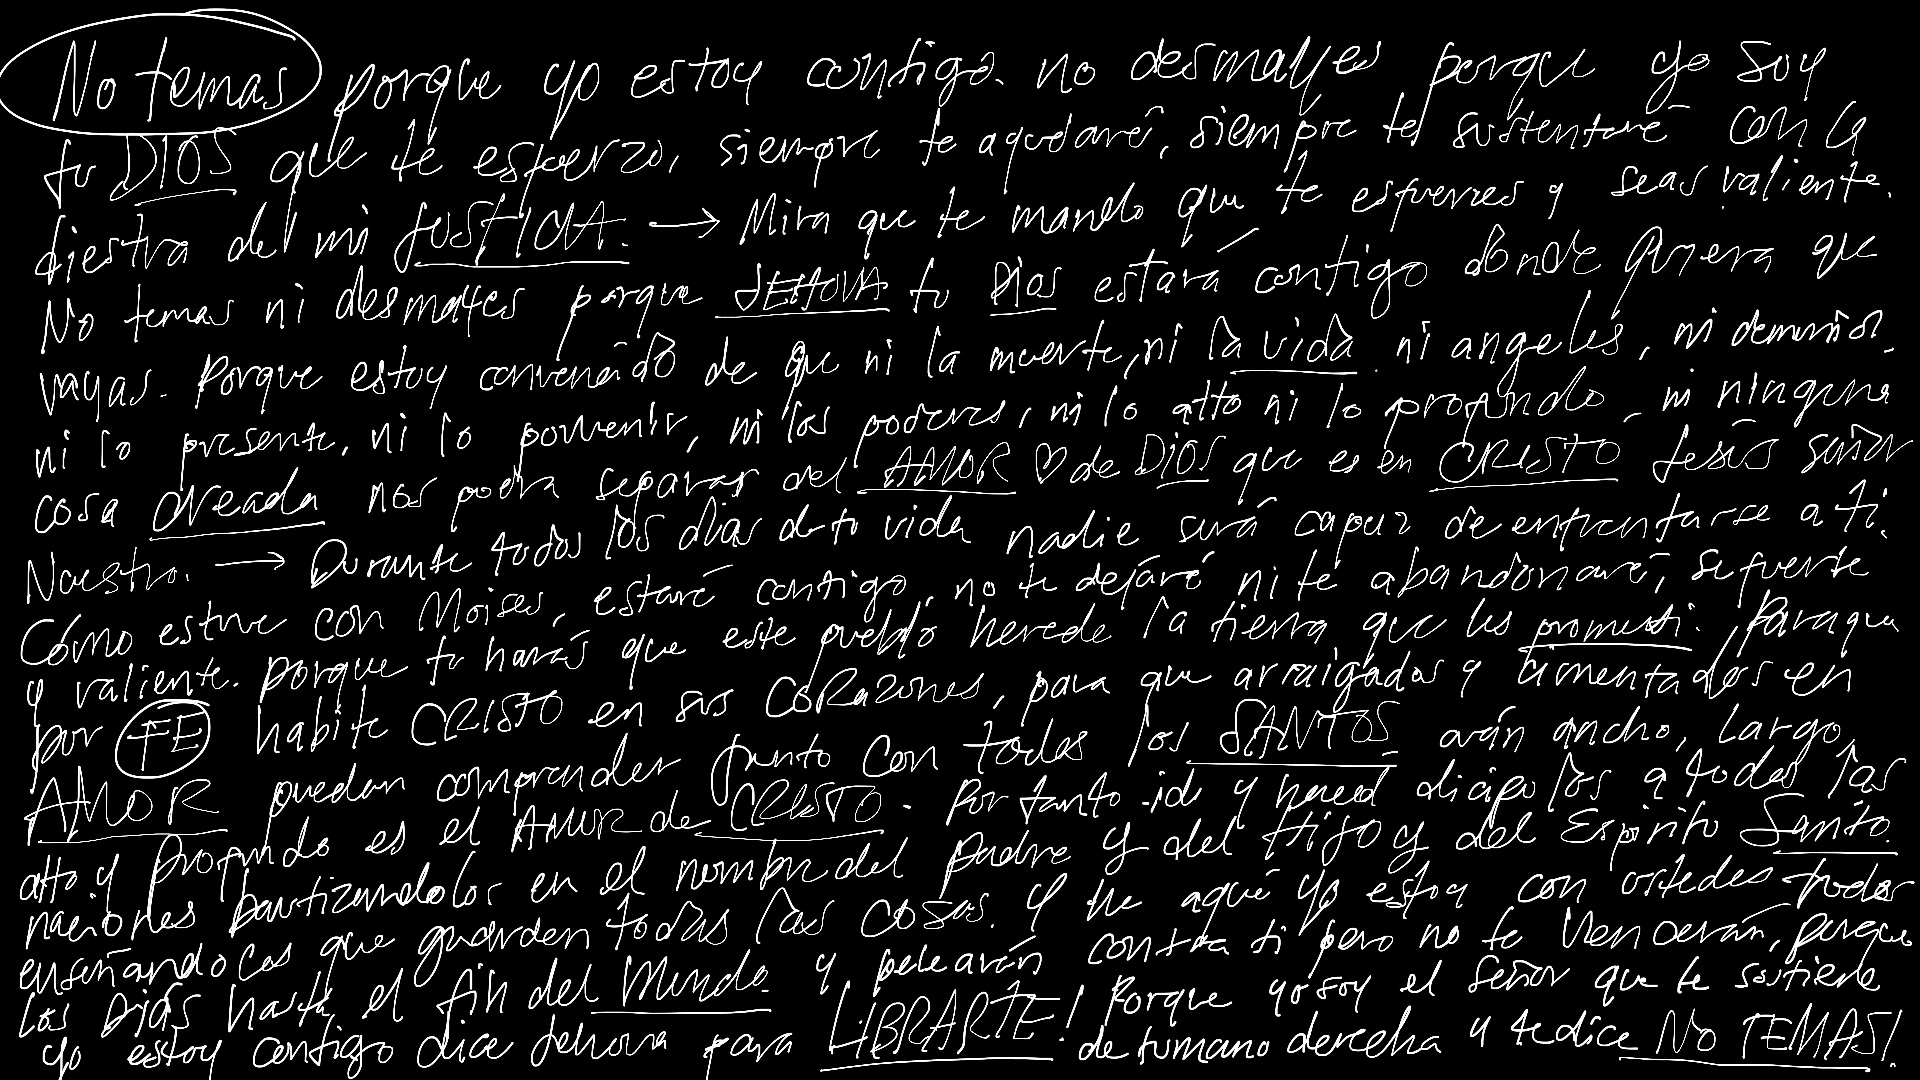 No temas porque yo estoy contigo. no desmayes porque yo soy
tu DIOS que te esfuerzo, siempre te ayudaré, siempre te sustentaré con la
diestra del mi JUSTICIA. → Mira que te mando que te esfuerces y seas valiente.
No temas ni desmayes porque JEHOVA tu Dios estará contigo donde quiera que
vayas. Porque estoy convencido de que ni la muerte, ni la vida ni angeles, ni demonios.
ni lo presente, ni lo porvenir, ni los poderes, ni lo alto ni lo profundo, ni ninguna
cosa creada nos podra separar del AMOR ♡ de DIOS que es en CRISTO Jesús señor
Nuestro. → Durante todos los dias de tu vida nadie será capaz de enfrentarse a ti.
Cómo estuve con Moises, estaré contigo, no te dejaré ni te abandonaré, se fuerte
y valiente. porque tu harás que este pueblo herede la tierra que les prometi. Para que
por FE habite CRISTO en sus CORazones, para que arraigados y cimentados en
AMOR puedan comprender junto con todos los SANTOS cuán ancho, largo,
alto y profundo es el AMOR de CRISTO. Por tanto id y haced dicipulos a todas las
naciones bautizandolos en el nombre del padre y del Hijo y del Espirito Santo.
enseñandoles que guarden todas las cosas. Y he aquí yo estoy con ustedes todos
los Dias hasta el fin del Mundo. y pelearán contra ti pero no te Vencerán, porque
yo estoy contigo dice Jehova para LIBRARTE! Porque yo soy el Señor que te sostiene
de tu mano derecha y te dice NO TEMAS!